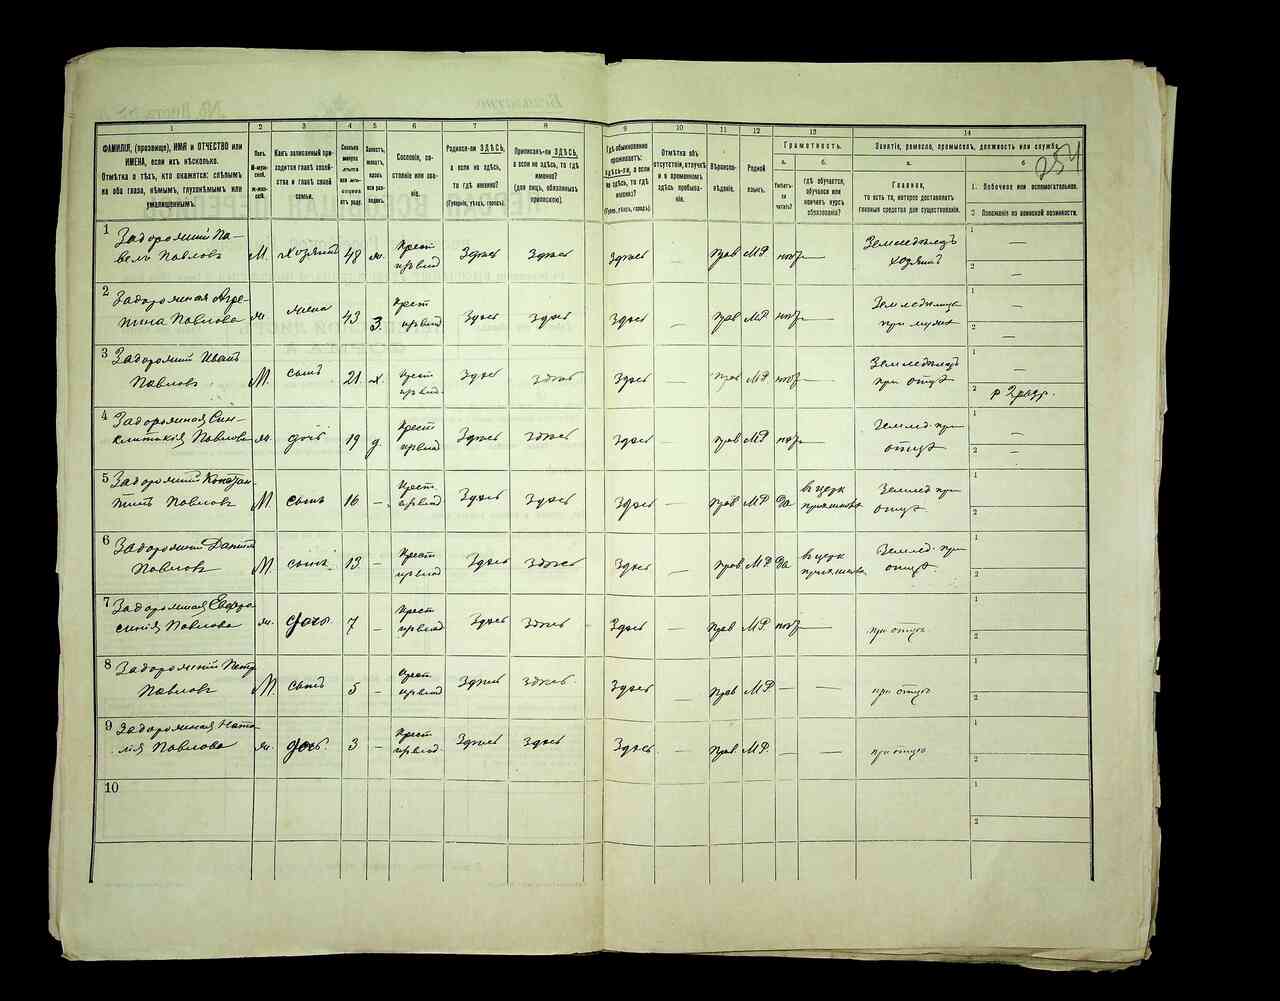 254
1 2 3 4 5 6 7 8 9 10 11 12 13 14
ФАМИЛІЯ, (прозвище), ИМЯ и ОТЧЕСТВО или
ИМЕНА, если ихъ нѣсколько.
Отмѣтка о тѣхъ, кто окажется: слѣпымъ
на оба глаза, нѣмымъ, глухонѣмымъ или
умалишеннымъ.
Полъ.
Какъ записанный при-
ходится главѣ хозяй-
ства и главѣ своей
семьи.
Сословіе, со-
стояніе или зва-
ніе.
Родился-ли ЗДѢСЬ,
а если не здѣсь,
то гдѣ именно?
(Губернія, уѣздъ, городъ).
Приписанъ-ли ЗДѢСЬ,
а если не здѣсь, то гдѣ
именно?
(для лицъ, обязанныхъ
припискою).
Гдѣ обыкновенно
проживаетъ:
здѣсь-ли, а если
не здѣсь, то гдѣ
именно?
(Губ., уѣздъ, городъ).
Отмѣтка объ
отсутствіи, отлучкѣ
и о временномъ
здѣсь пребыва-
ніи.
Вѣроиспо-
вѣданіе.
Родной
языкъ.
Грамотность.
а.
Умѣетъ-
ли
читать?
б.
гдѣ обучается,
обучался или
кончилъ курсъ
образованія?
Занятіе, ремесло, промыселъ, должность или служба.
а.
Главное,
то есть то, которое доставляетъ
главныя средства для существованія.
б.
1. Побочное или вспомогательное.
2. Положеніе по воинской повинности.
1 Задорожній Па-
велъ Павловъ М. хозяинъ 48 ж. Крест Здѣсь Здѣсь Здѣсь — Прав МР нѣтъ — Земледѣлецъ
хозяинъ 1 — 2 —
2 Задорожная Агре-
пина Павлова ж жена 43 З. Крест Здѣсь Здѣсь Здѣсь — Прав МР нѣтъ — при мужѣ 1 — 2 —
3 Задорожній Иванъ
Павловъ М. сынъ 21 х. Крест Здѣсь Здѣсь Здѣсь — Прав МР нѣтъ — Земледѣлецъ
при отцѣ 1 — 2 р 2 разр.
4 Задорожная Син-
клитикія Павлова ж. дочь 19 д. Крест Здѣсь Здѣсь Здѣсь — Прав МР нѣтъ — Землед. при
отцѣ 1 — 2 —
5 Задорожній Констан-
тинъ Павловъ М сынъ 16 — Крест Здѣсь Здѣсь Здѣсь — Прав МР да Землед. при
отцѣ 1 2
6 Задорожній Данил
Павловъ М сынъ 13 — Крест Здѣсь Здѣсь Здѣсь — Прав МР да Землед. при
отцѣ 1 2
7 Задорожная Евфро
синія Павлова ж. дочь 7 — Крест Здѣсь Здѣсь Здѣсь — Прав МР нѣтъ — при отцѣ 1 2
8 Задорожній Петръ
Павловъ М. сынъ 5 — Крест Здѣсь Здѣсь Здѣсь — Прав МР — — при отцѣ 1 2
9 Задорожная Ната
лія Павлова ж. дочь 3 — Крест Здѣсь Здѣсь Здѣсь — Прав. МР. — — при отцѣ 1 2
10 1 2